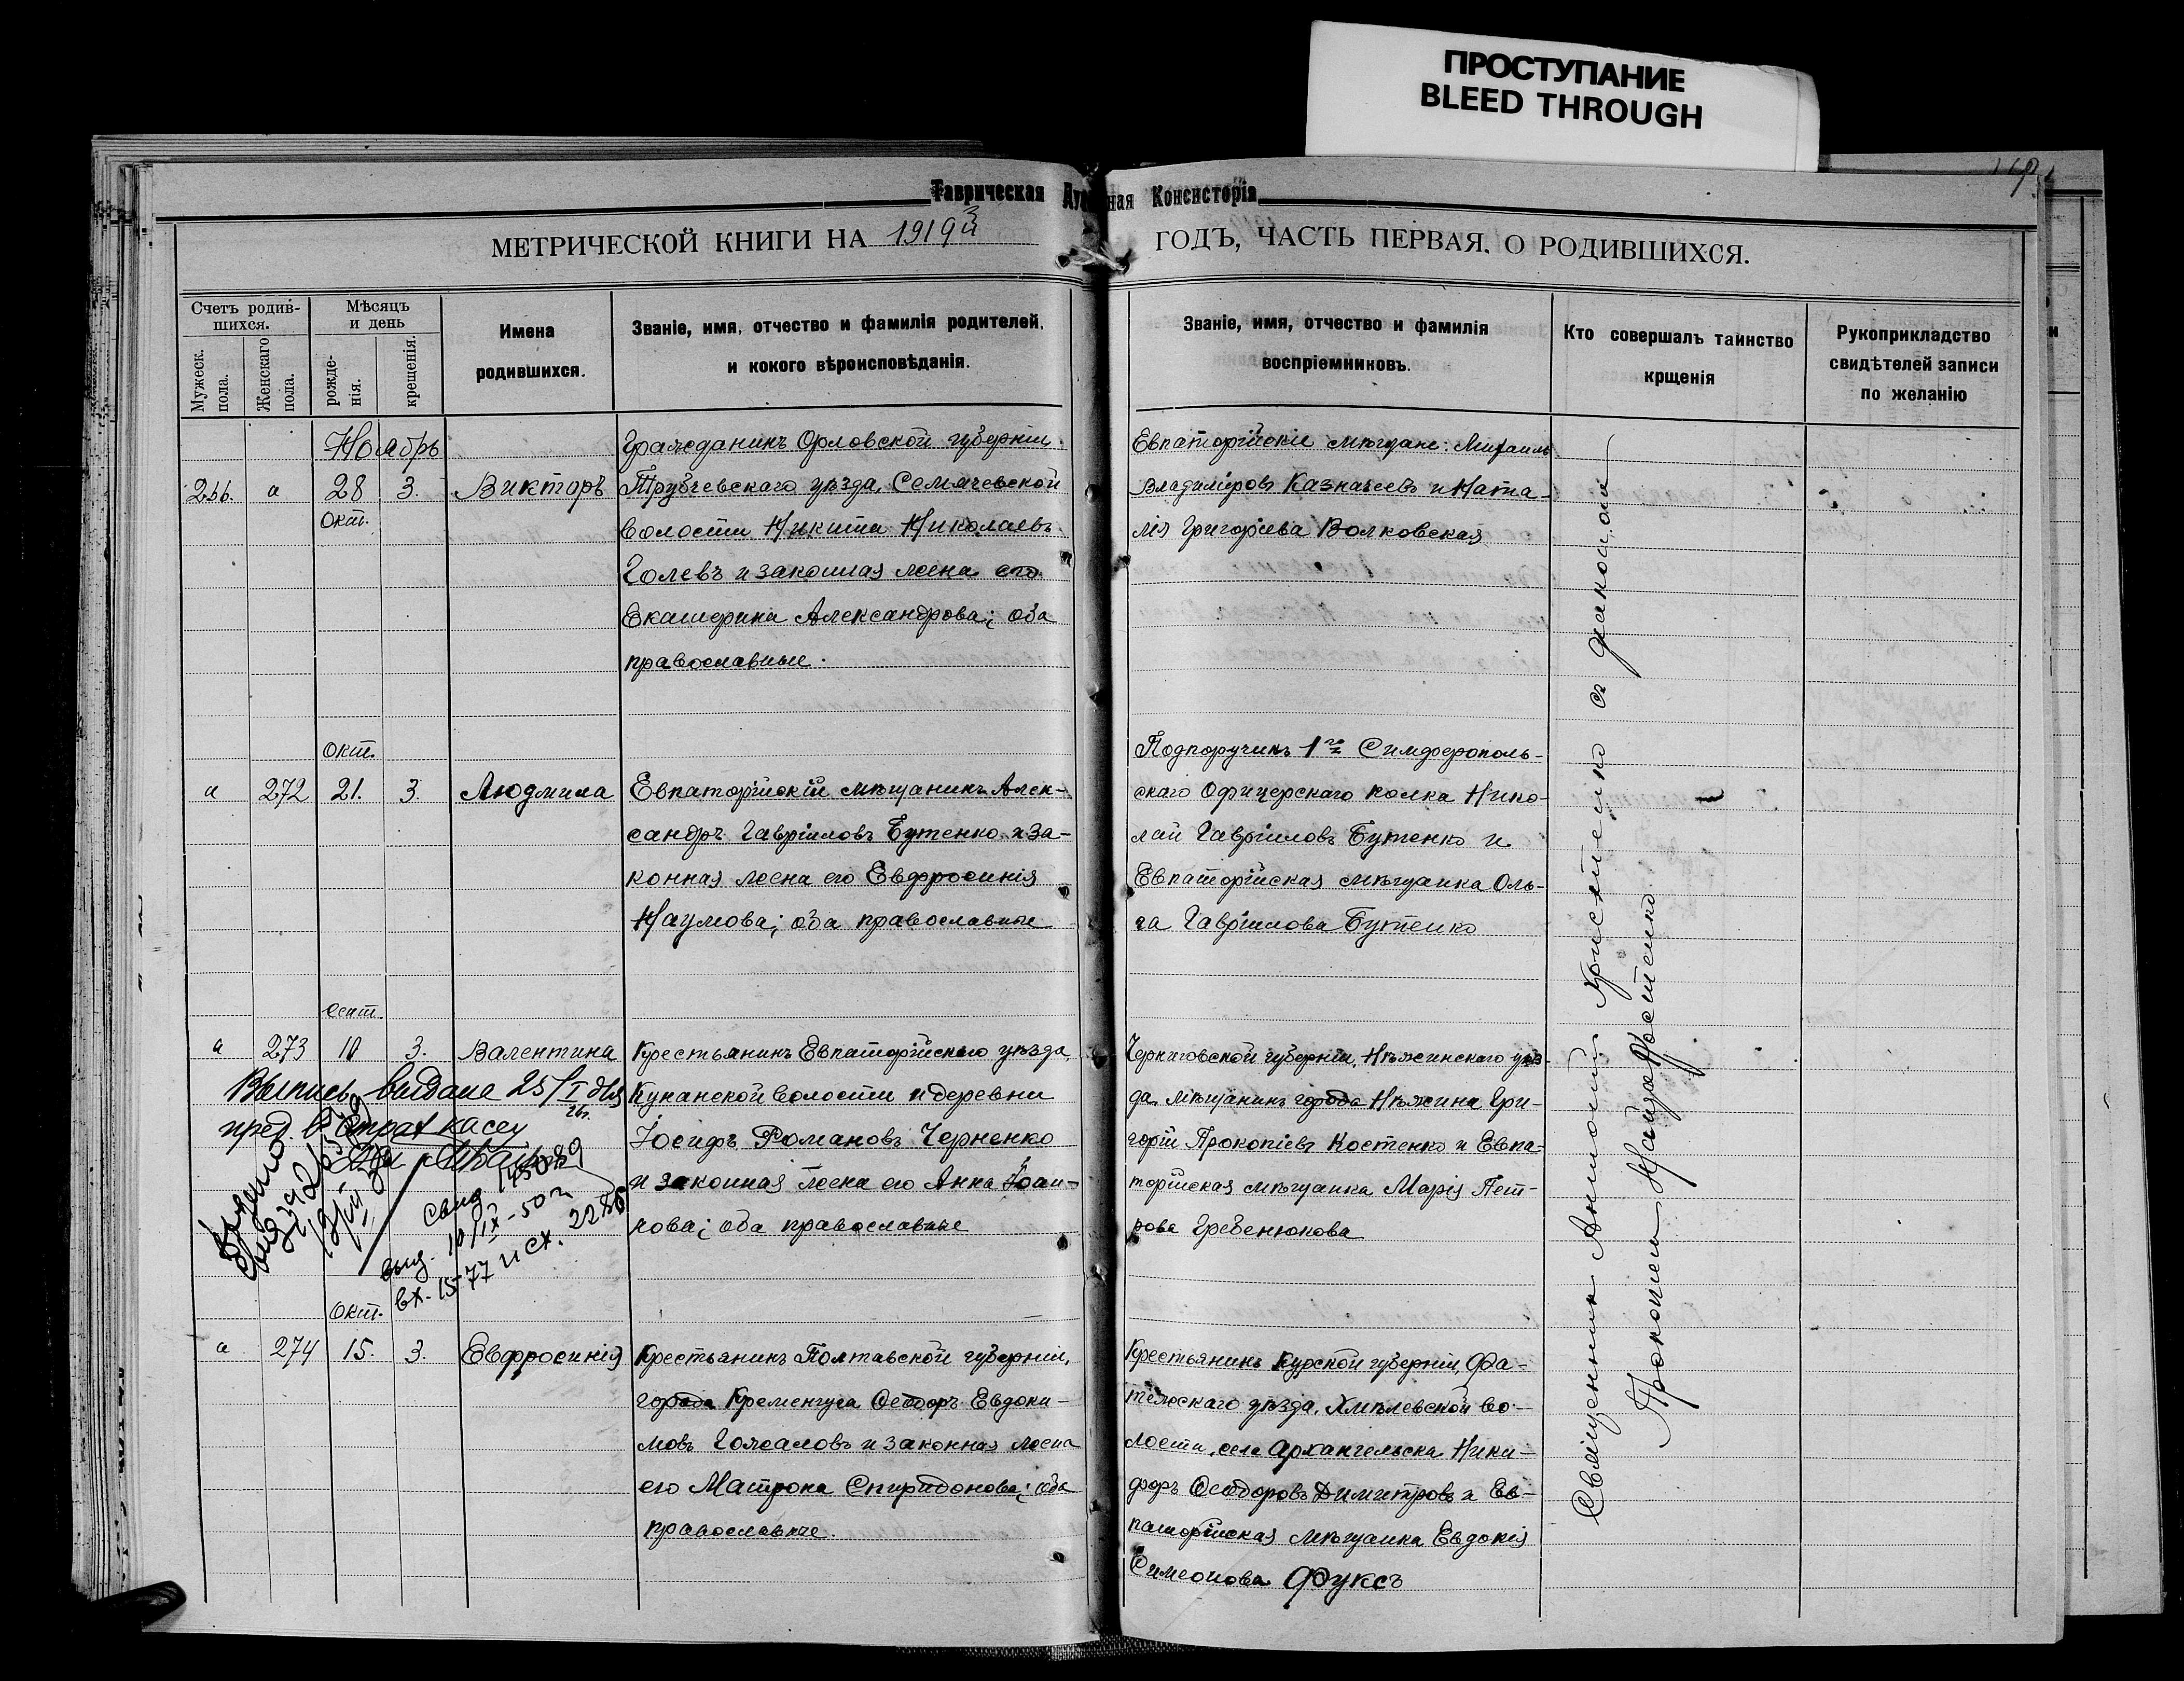 ПРОСТУПАНИЕ
BLEED THROUGH
Таврическая Духовная Консисторія
МЕТРИЧЕСКОЙ КНИГИ НА 1919й ГОДЪ, ЧАСТЬ ПЕРВАЯ, О РОДИВШИХСЯ.
Счетъ родив-
шихся.
Мужеск.
пола.
Женскаго
пола.
Мѣсяцъ
и день
рожде-
нія.
крещенія.
Имена
родившихся.
Званіе, имя, отчество и фамилія родителей,
и кокого вѣроисповѣданія.
Званіе, имя, отчество и фамилія
воспріемниковъ.
Кто совершалъ таинство
крщенія
Рукоприкладство
свидѣтелей записи
по желанію
Ноябрь
266. а 28 3. Викторъ
Окт.
Гражданинъ Орловской губерніи
Трубчевскаго уѣзда, Семячевской
волости Никита Николаевъ
Голевъ и законная жена его
Екатерина Александрова; оба
православные.
Евпаторійскіе мѣщане: Михаилъ
Владиміровъ Казначеевъ и Ната-
лія Григоріева Волковская
Окт.
а 272 21. 3. Людмила
Евпаторійскій мѣщанинъ Алек-
сандръ Гавріиловъ Бутенко и за-
конная жена его Евфросинія
Наумова; оба православные
Подпоручикъ 1го Симферополь-
скаго Офицерскаго полка Нико-
лай Гавріиловъ Бутенко и
Евпаторійская мѣщанка Оль-
га Гавріилова Бутенко
Сент.
а 273 10 3. Валентина
Крестьянинъ Евпаторійскаго уѣзда,
Кунанской волости и деревни
Іосифъ Романовъ Черненко
и законная жена его Анна Іоан-
нова; оба православные
Черниговской губерніи, Нѣжинскаго уѣз-
да, мѣщанинъ города Нѣжина Гри-
горій Прокопіевъ Костенко и Евпа-
торійская мѣщанка Марія Пет-
рова Гребенюкова
Выпись выдана 25/I для
пред. в страх кассу
выд. 10/IX-50 г
вх. 1577 исх.
Окт.
а 274 15. 3. Евфросинія
Крестьянинъ Полтавской губерніи,
города Кременчуга Ѳеодоръ Евдоки-
мовъ Гожаловъ и законная жена
его Матрона Спиридонова; оба
православные.
Крестьянинъ Курской губерніи, Фа-
тежскаго уѣзда, Хмѣлевской во-
лости, села Архангельска Ники-
форъ Ѳеодоровъ Димитровъ и Ев-
паторійская мѣщанка Евдокія
Симеонова Фуксъ
Священникъ Антоній Христенко съ діакономъ
Прокопіемъ